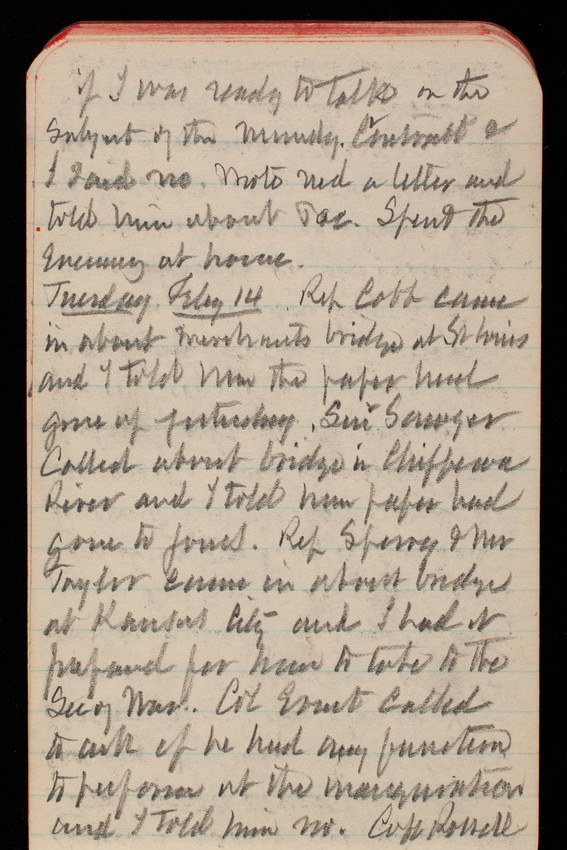 if I was ready to talk on the
subject of the Mundy. Contract &
I said no. Moto red a letter and
told him about Doc. Spent the
Evening at home.
Tuesday Feby 14 Rep Cobb came
in about Merchants bridge at St Louis
and I told him the paper had
gone up yesterday. Sen Sawyer
Called about bridge in Chippewa
River and I told him paper had
gone to Jones. Rep Sperry & Mr
Taylor came in about bridge
at Kansas City and I had it
prepared for him to take to the
Sec of War. Col Ernst called
to ask if he had any function
to perform at the inauguration
and I told him no. Capt